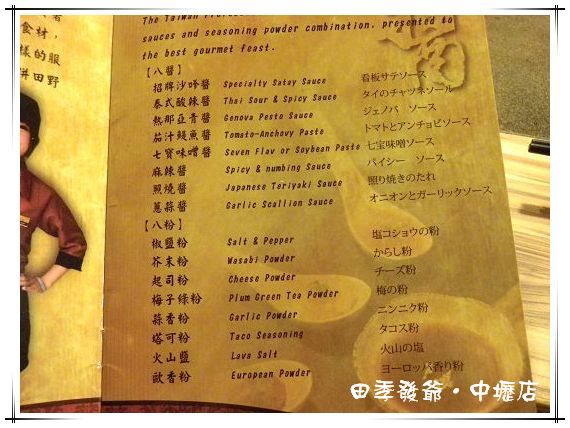 食材，
樣的服
拼田野
The Taiwan
sauces and seasoning powder combination, presented to
the best gourmet feast.
【八醬】
招牌沙嗲醬 Specialty Satay Sauce 看板サテソース
泰式酸辣醬 Thai Sour & Spicy Sauce タイのチャツネソール
熱那亞青醬 Genova Pesto Sauce ジェノバ ソース
茄汁鯷魚醬 Tomato-Anchovy Paste トマトとアンチョビソース
七寶味噌醬 Seven Flav or Soybean Paste 七宝味噌ソース
麻辣醬 Spicy & numbing Sauce パイシー ソース
照燒醬 Japanese Teriyaki Sauce 照り焼きのたれ
蔥蒜醬 Garlic Scallion Sauce オニオンとガーリックソース
【八粉】
椒鹽粉 Salt & Pepper 塩コショウの粉
芥末粉 Wasabi Powder からし粉
起司粉 Cheese Powder チーズ粉
梅子綠粉 Plum Green Tea Powder 梅の粉
蒜香粉 Garlic Powder ニンニク粉
塔可粉 Taco Seasoning タコス粉
火山鹽 Lava Salt 火山の塩
歐香粉 European Powder ヨーロッパ香り粉
田季發爺・中壢店